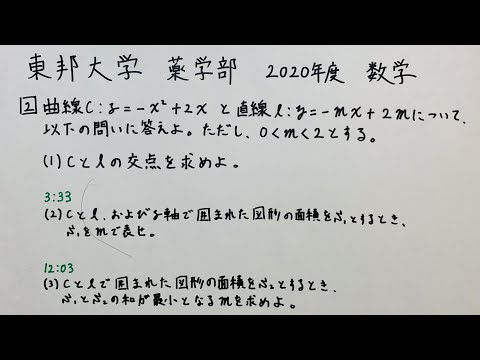 東邦大学 薬学部 2020年度 数学
2 曲線C:y=-x²+2xと直線l:y=-mx+2mについて、
以下の問いに答えよ。ただし、0<m<2とする。
(1) Cとlの交点を求めよ。
3:33
(2) Cとl、およびy軸で囲まれた図形の面積をS₁とするとき、
S₁をmで表せ。
12:03
(3) Cとlで囲まれた図形の面積をS₂とするとき、
S₁とS₂の和が最小となるmを求めよ。